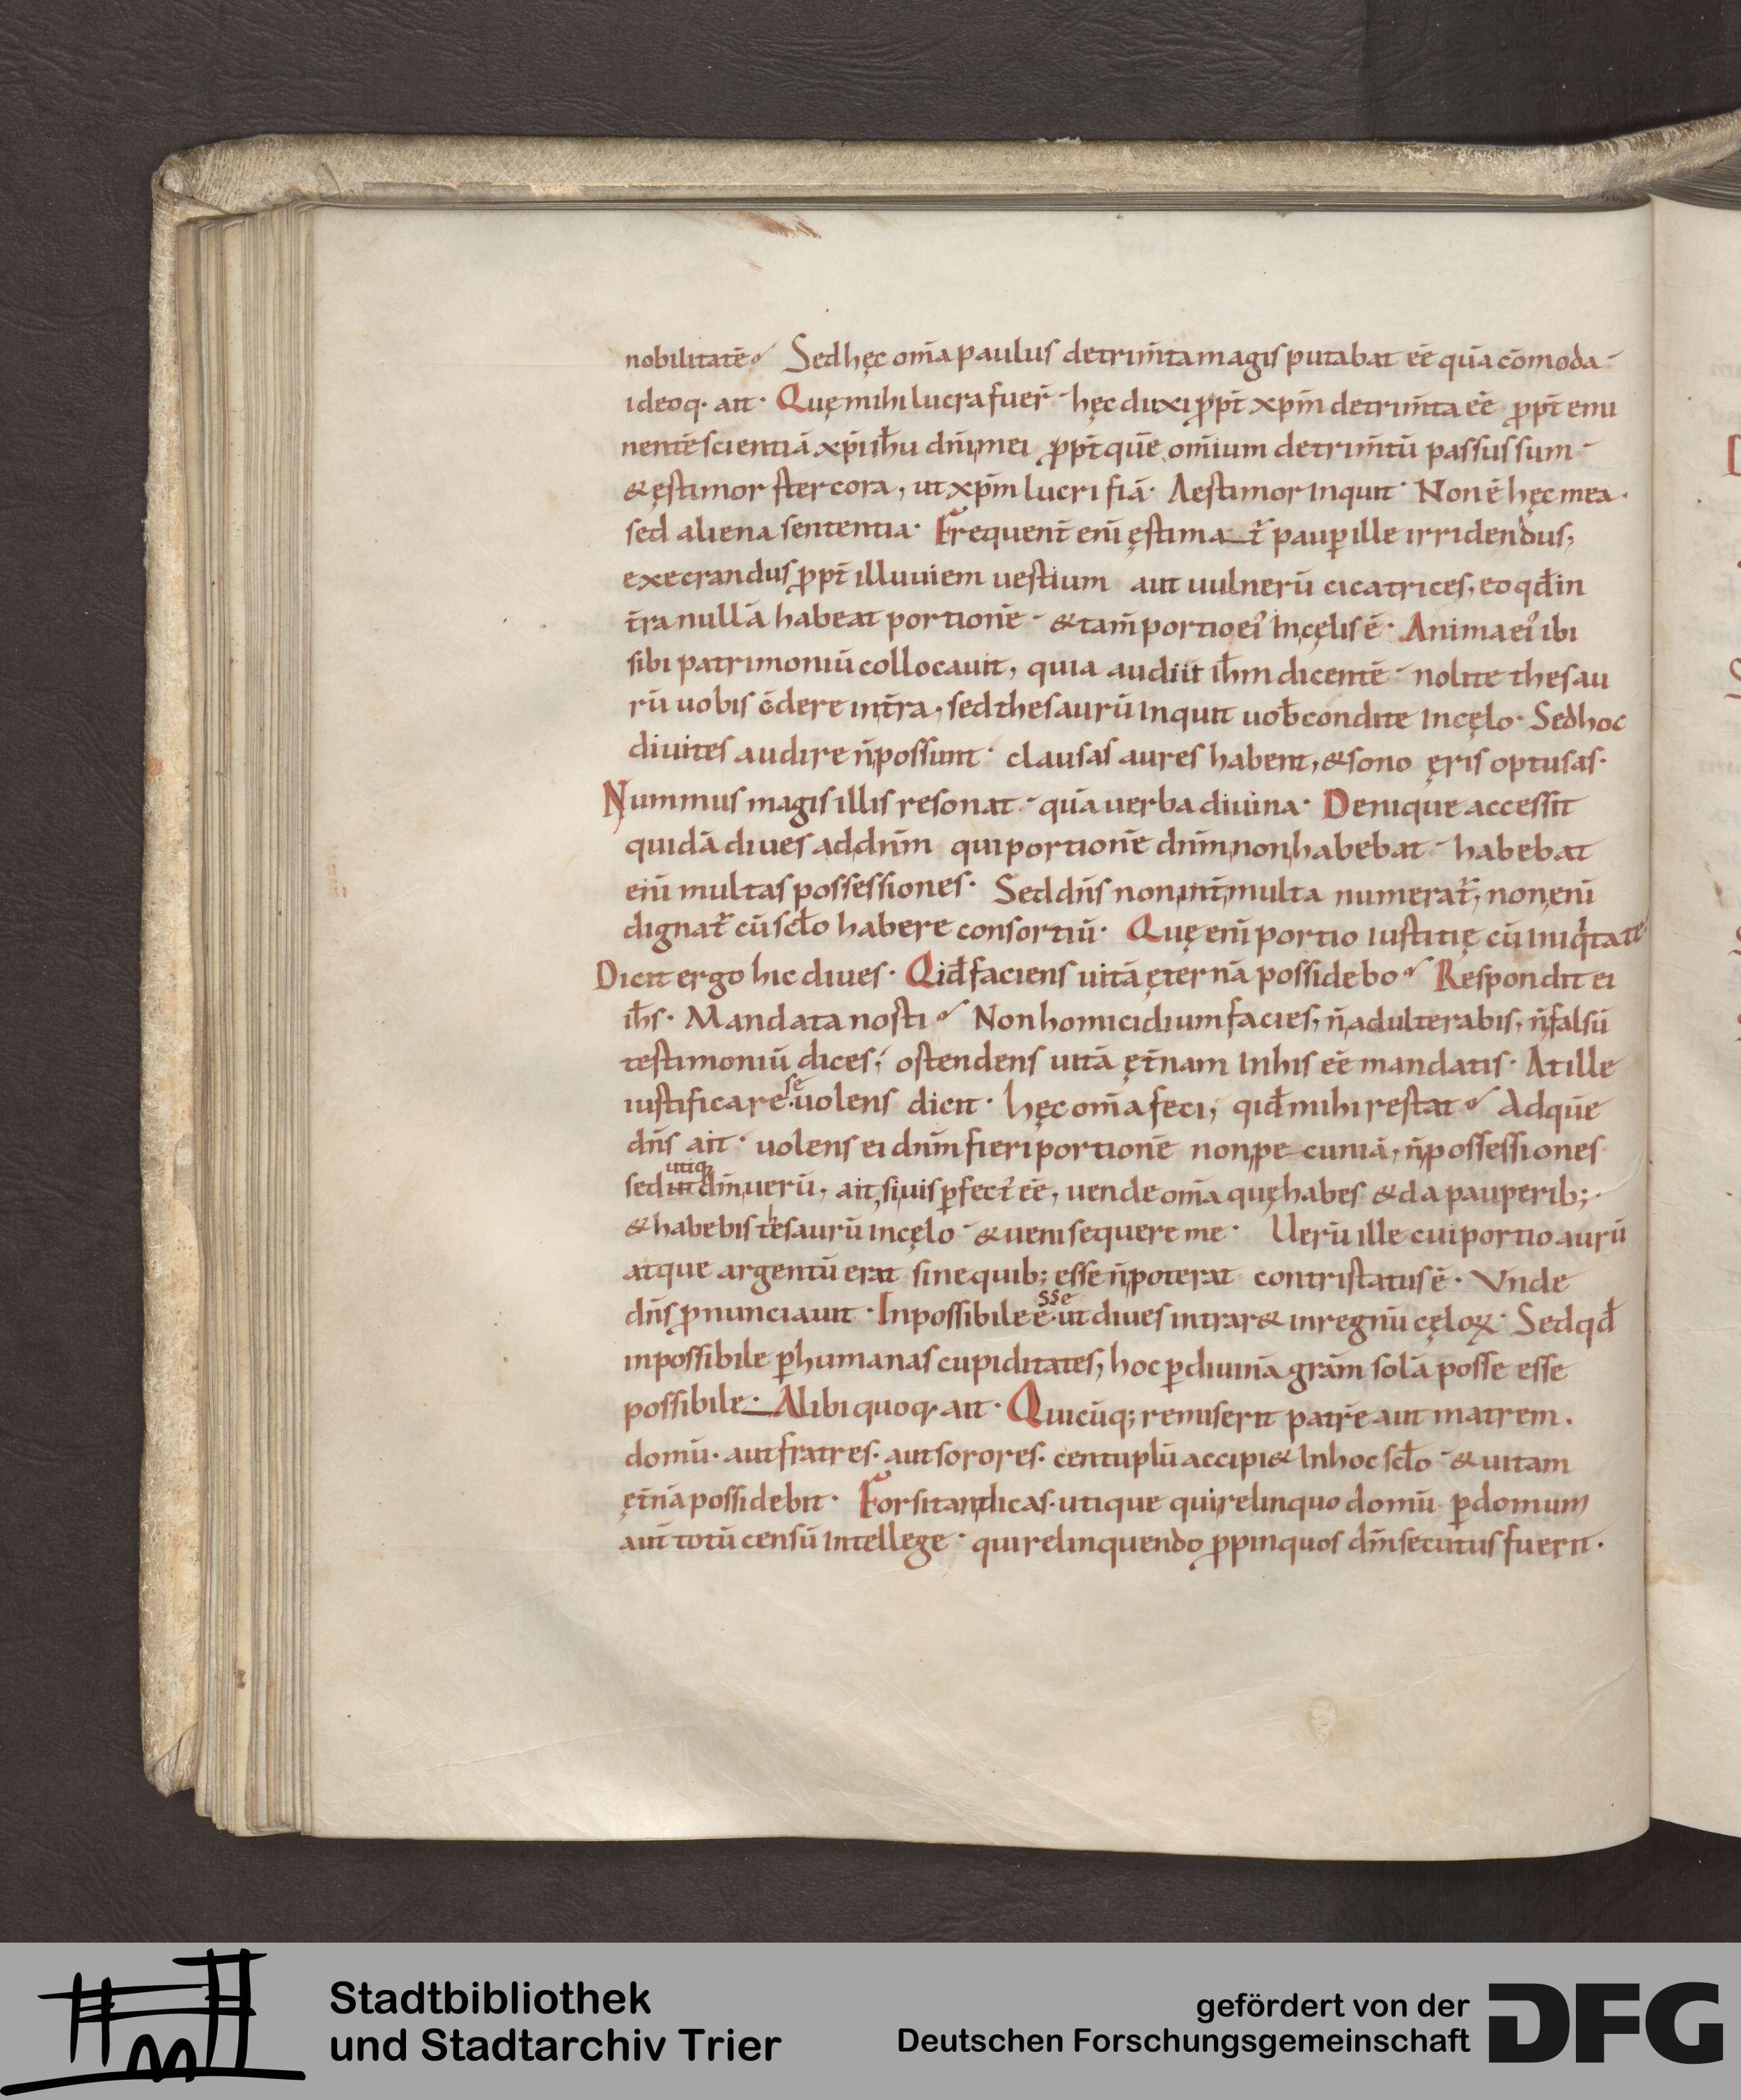 nobilitatē Sed hęc om̄a paulus detrim̄ta magis putabat eē quā cōmoda
ideoq. ait. Quę mihi lucra fuer̄ hęc duxi ꝓpt̄ xp̄m detrim̄ta eē ꝓpt̄ emi
nentē scientiā xp̄i ih̄u dn̄i mei ꝓpt̄ quē om̄ium detrim̄tū passus sum
& ęstimor stercora, ut xp̄m lucri fiā. Aestimor inquit. Non ē hęc mea.
sed aliena sententia. Frequent̄ eni̅ ęstimat̄ paup̱ ille irridendus,
execrandus ꝓpt̄ illuuiem uestium aut uulnerū cicatrices, eo qd̄ in
t̄ra nullā habeat portionē & tam̄ portio ei' in cęlis ē. Anima ei' ibi
sibi patrimoniū collocauit, quia audiit ih̄m dicentē nolite thesau
rū uobis c̄dere in t̄ra, sed thesaurū inquit uob̄ condite in cęlo. Sed hoc
diuites audire n̄ possunt. clausas aures habent, & sono ęris optusas.
Nummus magis illis resonat quā uerba diuina. Denique accessit
quidā diues ad dn̄m qui portionē dn̄m non habebat habebat
eni̅ multas possessiones. Sed dn̄s non int̄ multa numerat̄, non eni̅
dignat̄ cū scl̄o habere consortiū. Quę eni̅ portio iustitię cū iniq̇tate
Dicit ergo hic diues. Qid̄ faciens uitā ęternā possidebo Respondit ei
ih̄s. Mandata nosti Non homicidium facies, n̄ adulterabis, n̄ falsū
testimoniū dices; ostendens uitā ęt̄nam in his eē mandatis. At ille
se
iustificare uolens dicit. hęc om̄a feci, qid̄ mihi restat Ad quē
dn̄s ait. uolens ei dn̄m fieri portionē non pecuniā, n̄ possessiones
utiq
sed ut dm̄ uerū, ait, si uis p̱fect' eē, uende om̄a quę habes & da pauperib;
h
& habebis tesaurū in cęlo & ueni sequere me. Uerū ille cui portio aurū
atque argentū erat sine quib; esse n̄ poterat contristatus ē. Vnde
sse
dn̄s ꝓnunciauit. Inpossibile ē ut diues intrar& in regnū cęloꝝ. Sed qd̄
inpossibile p̱ humanas cupiditates, hoc p̱ diuinā grām solā posse esse
possibile. Alibi quoq. ait. Quicūq; remiserit patrē aut matrem.
domū. aut fratres. aut sorores. centuplū accipi& in hoc scl̄o & uitam
ęt̄nā possidebit. Forsitan dicas. utique qui relinquo domū p̱ domum
aut totū censū intellege. qui relinquendo ꝓpinquos dm̄ secutus fuerit.
Stadtbibliothek
und Stadtarchiv Trier
gefördert von der
Deutschen Forschungsgemeinschaft
DFG